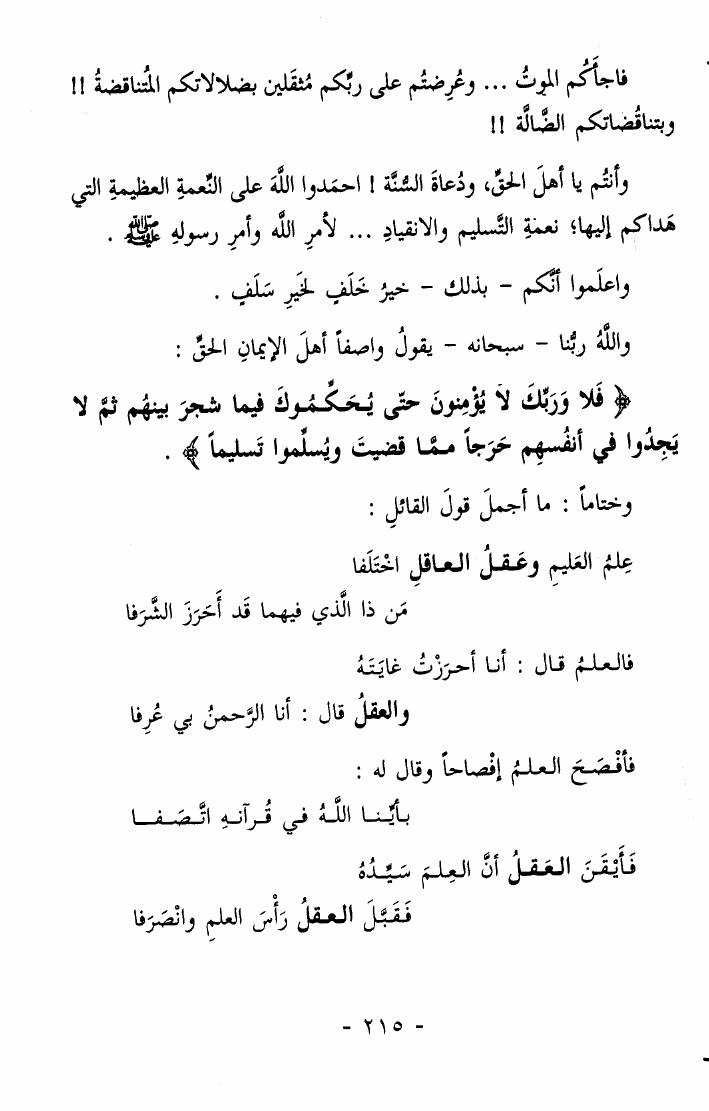 فاجأَكُم الموتُ ... وعُرِضتُم على ربِّكم مُثقَلين بضلالاتكم المُتناقضةُ !!
وبتناقُضاتكم الضَّالَّة !!
وأنتُم يا أهلَ الحقِّ، ودُعاةَ السُّنَّة ! احمَدوا اللَّهَ على النِّعمةِ العظيمةِ التي
هَداكم إليها؛ نعمَةِ التَّسليم والانقيادِ ... لأمرِ اللَّه وأمرِ رسولهِ ﷺ .
واعلَموا أنَّكم - بذلك - خيرُ خَلَفٍ لخَيرِ سَلَفٍ .
واللَّهُ ربُّنا - سبحانه - يقولُ واصفاً أهلَ الإيمانِ الحقِّ :
﴿ فَلا وَرَبِّكَ لَا يُؤْمِنونَ حتّى يُحَكِّمُوكَ فيما شجرَ بينهُم ثمَّ لا
يَجِدُوا في أنفُسهِم حَرَجاً ممَّا قضيتَ ويُسلِّموا تَسليماً ﴾ .
وختاماً : ما أجملَ قولَ القائلِ :
عِلمُ العَليمِ وعَقلُ العاقلِ اخْتَلَفا
مَن ذا الَّذي فيهما قَد أَحَرَزَ الشَّرَفا
فالعلمُ قال : أنا أحرَزْتُ غايَتَهُ
والعقلُ قال : أنا الرَّحمنُ بي عُرِفا
فأفْصَحَ العلمُ إفْصاحاً وقال له :
بأيِّنا اللَّهُ في قُرآنهِ اتَّصَفا
فَأَيْقَنَ العَقلُ أنَّ العِلمَ سَيِّدُهُ
فَقَبَّلَ العقلُ رَأْسَ العلمِ وانْصَرَفا
- ٢١٥ -